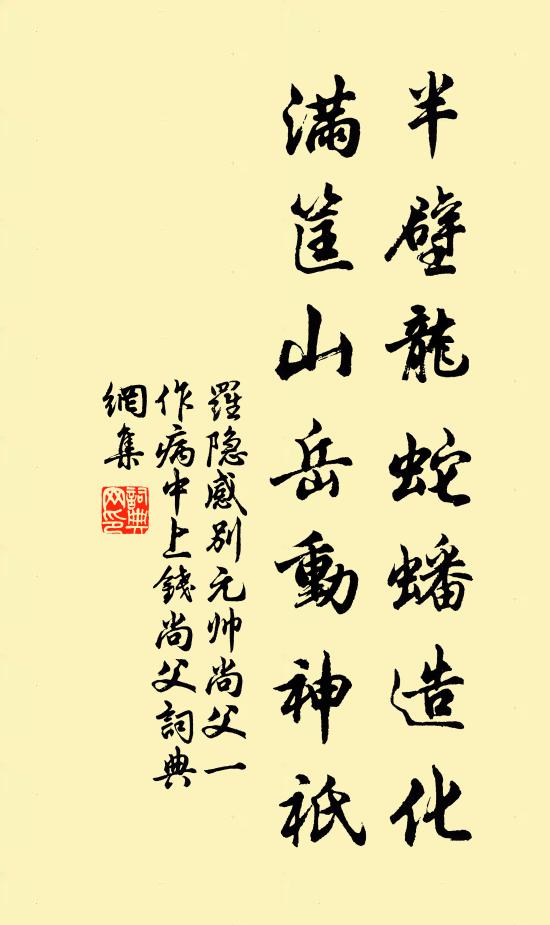 半壁龍蛇蟠造化
滿筐山岳動神祇
羅隐感別元帅尚父一
作病中上錢尚父詞典
網集
詞典
网印